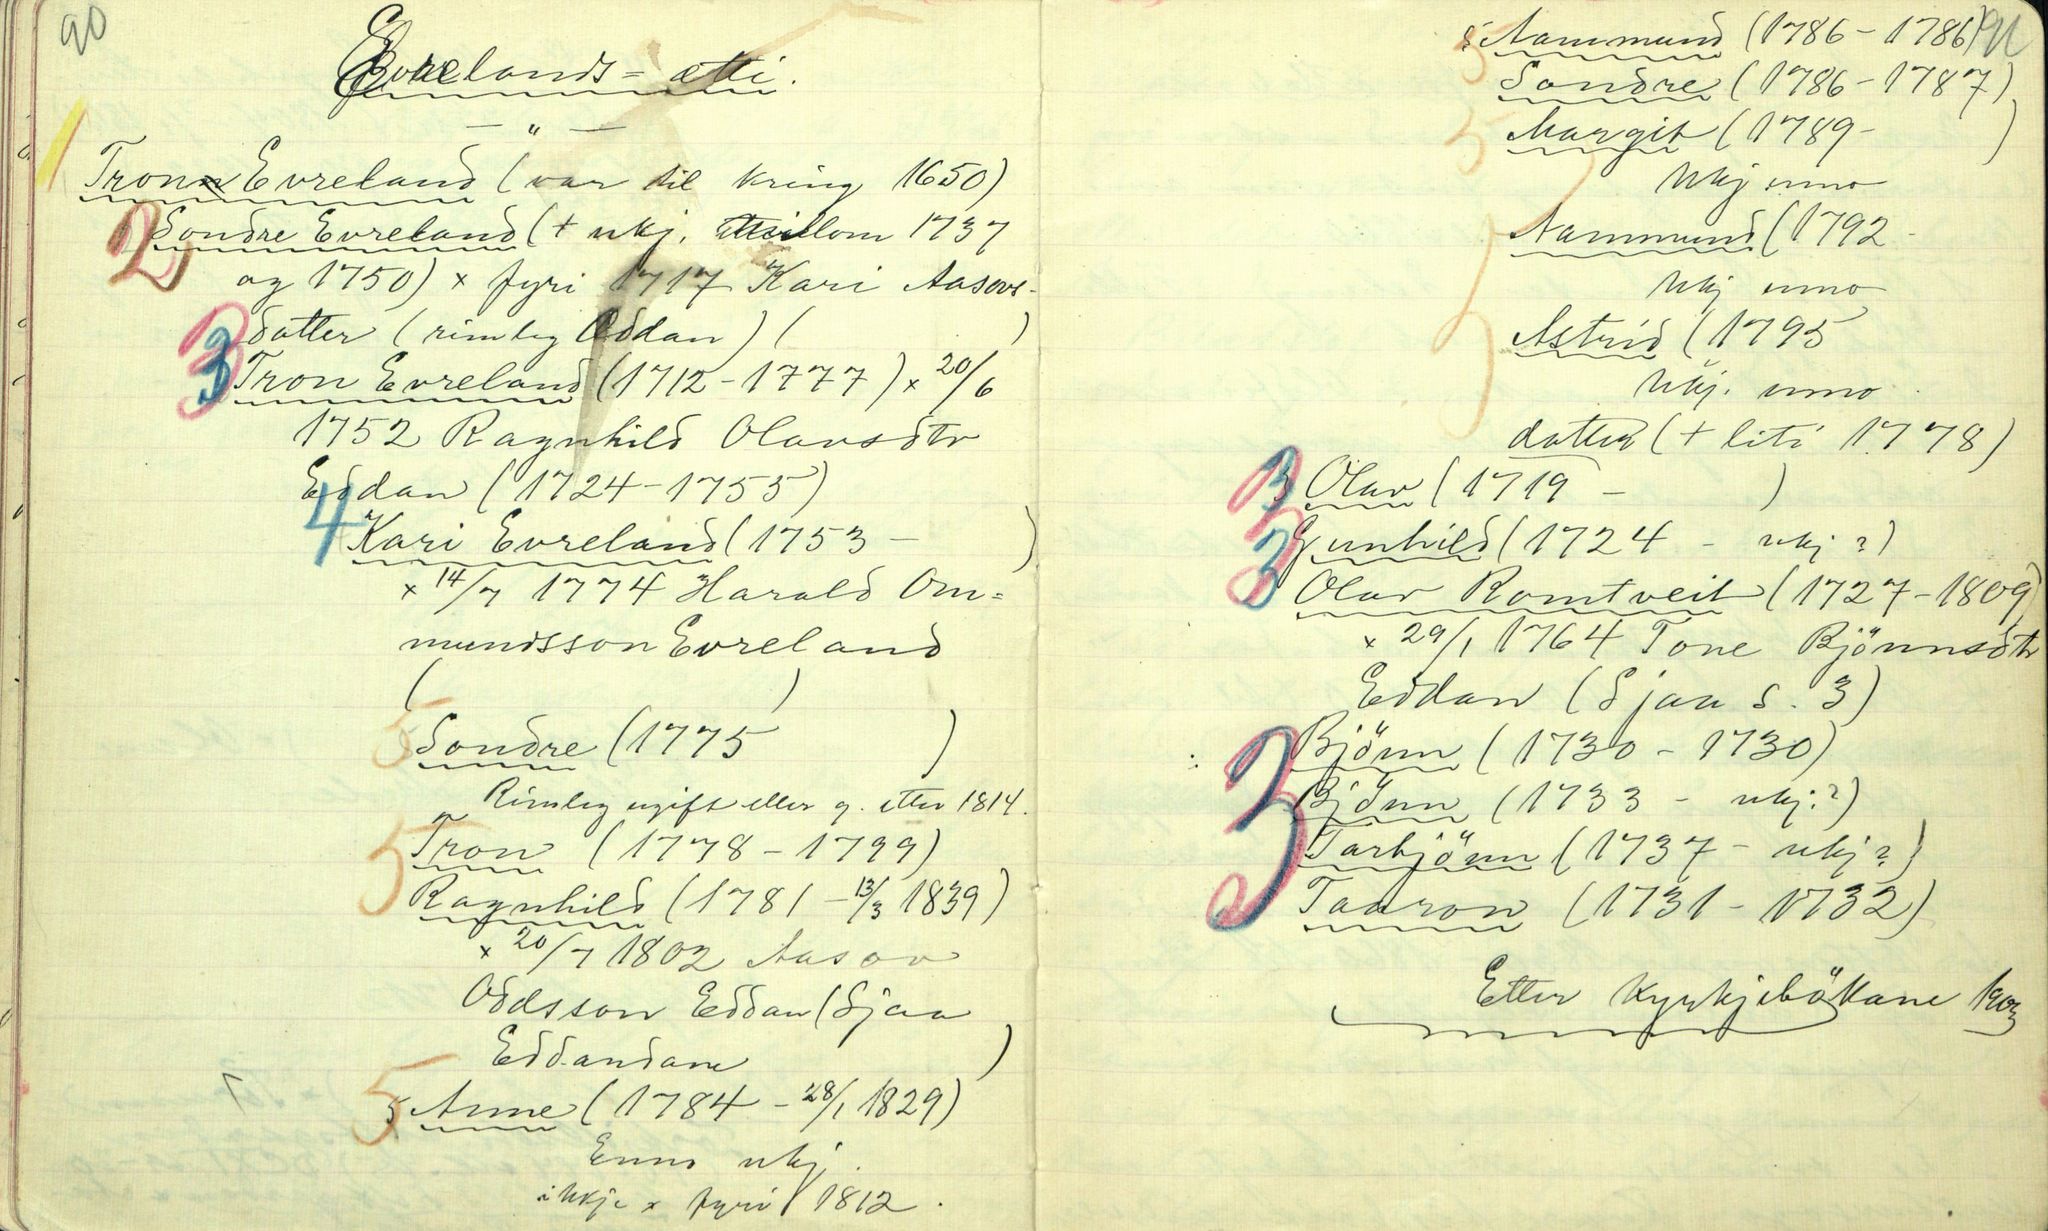 90
Evrelands=ætti.
— " —
1
Tron Evreland (var til kring 1650)
2 Sondre Evreland (+ ukj. millom 1737
og 1750) × fyri 1717 Kari Aasovs-
datter (rimleg Eddan) ( )
3 Tron Evreland (1712-1777) × 20/6
1752 Ragnhild Olavsdtr
Eddan (1724-1755)
4 Kari Evreland (1753 - )
× 14/7 1774 Harald Om=
mundsson Evreland
( )
5 Sondre (1775 )
Rimleg ugift eller g. etter 1814.
5 Tron (1778 - 1799)
Ragnhild (1781 - 13/3 1839)
× 20/7 1802 Aasov
Oddsson Eddan (Sjaa
Eddandane )
5 Anne (1784 - 28/1 1829)
Enno ukj.
ikkje × fyri 1812.
91
5 Aammund (1786-1786)
Sondre (1786-1787)
5 Margit (1789- )
Ukj enno
5 Aammund (1792-
Ukj enno
Astrid (1795
Ukj. enno.
datter (+ liti 1778)
3 Olav (1719 - )
Gunhild (1724 - ukj?)
3 Olav Romtveit (1727-1809)
× 29/1 1764 Tone Bjönnsdtr
Eddan (Sjaa s. 3)
3 Bjönn (1730 - 1730)
Bjönn (1733 - ukj.?)
Tarbjönn (1737 - ukj?)
Taaron (1731 - 1732)
Etter kyrkjebökane 1903